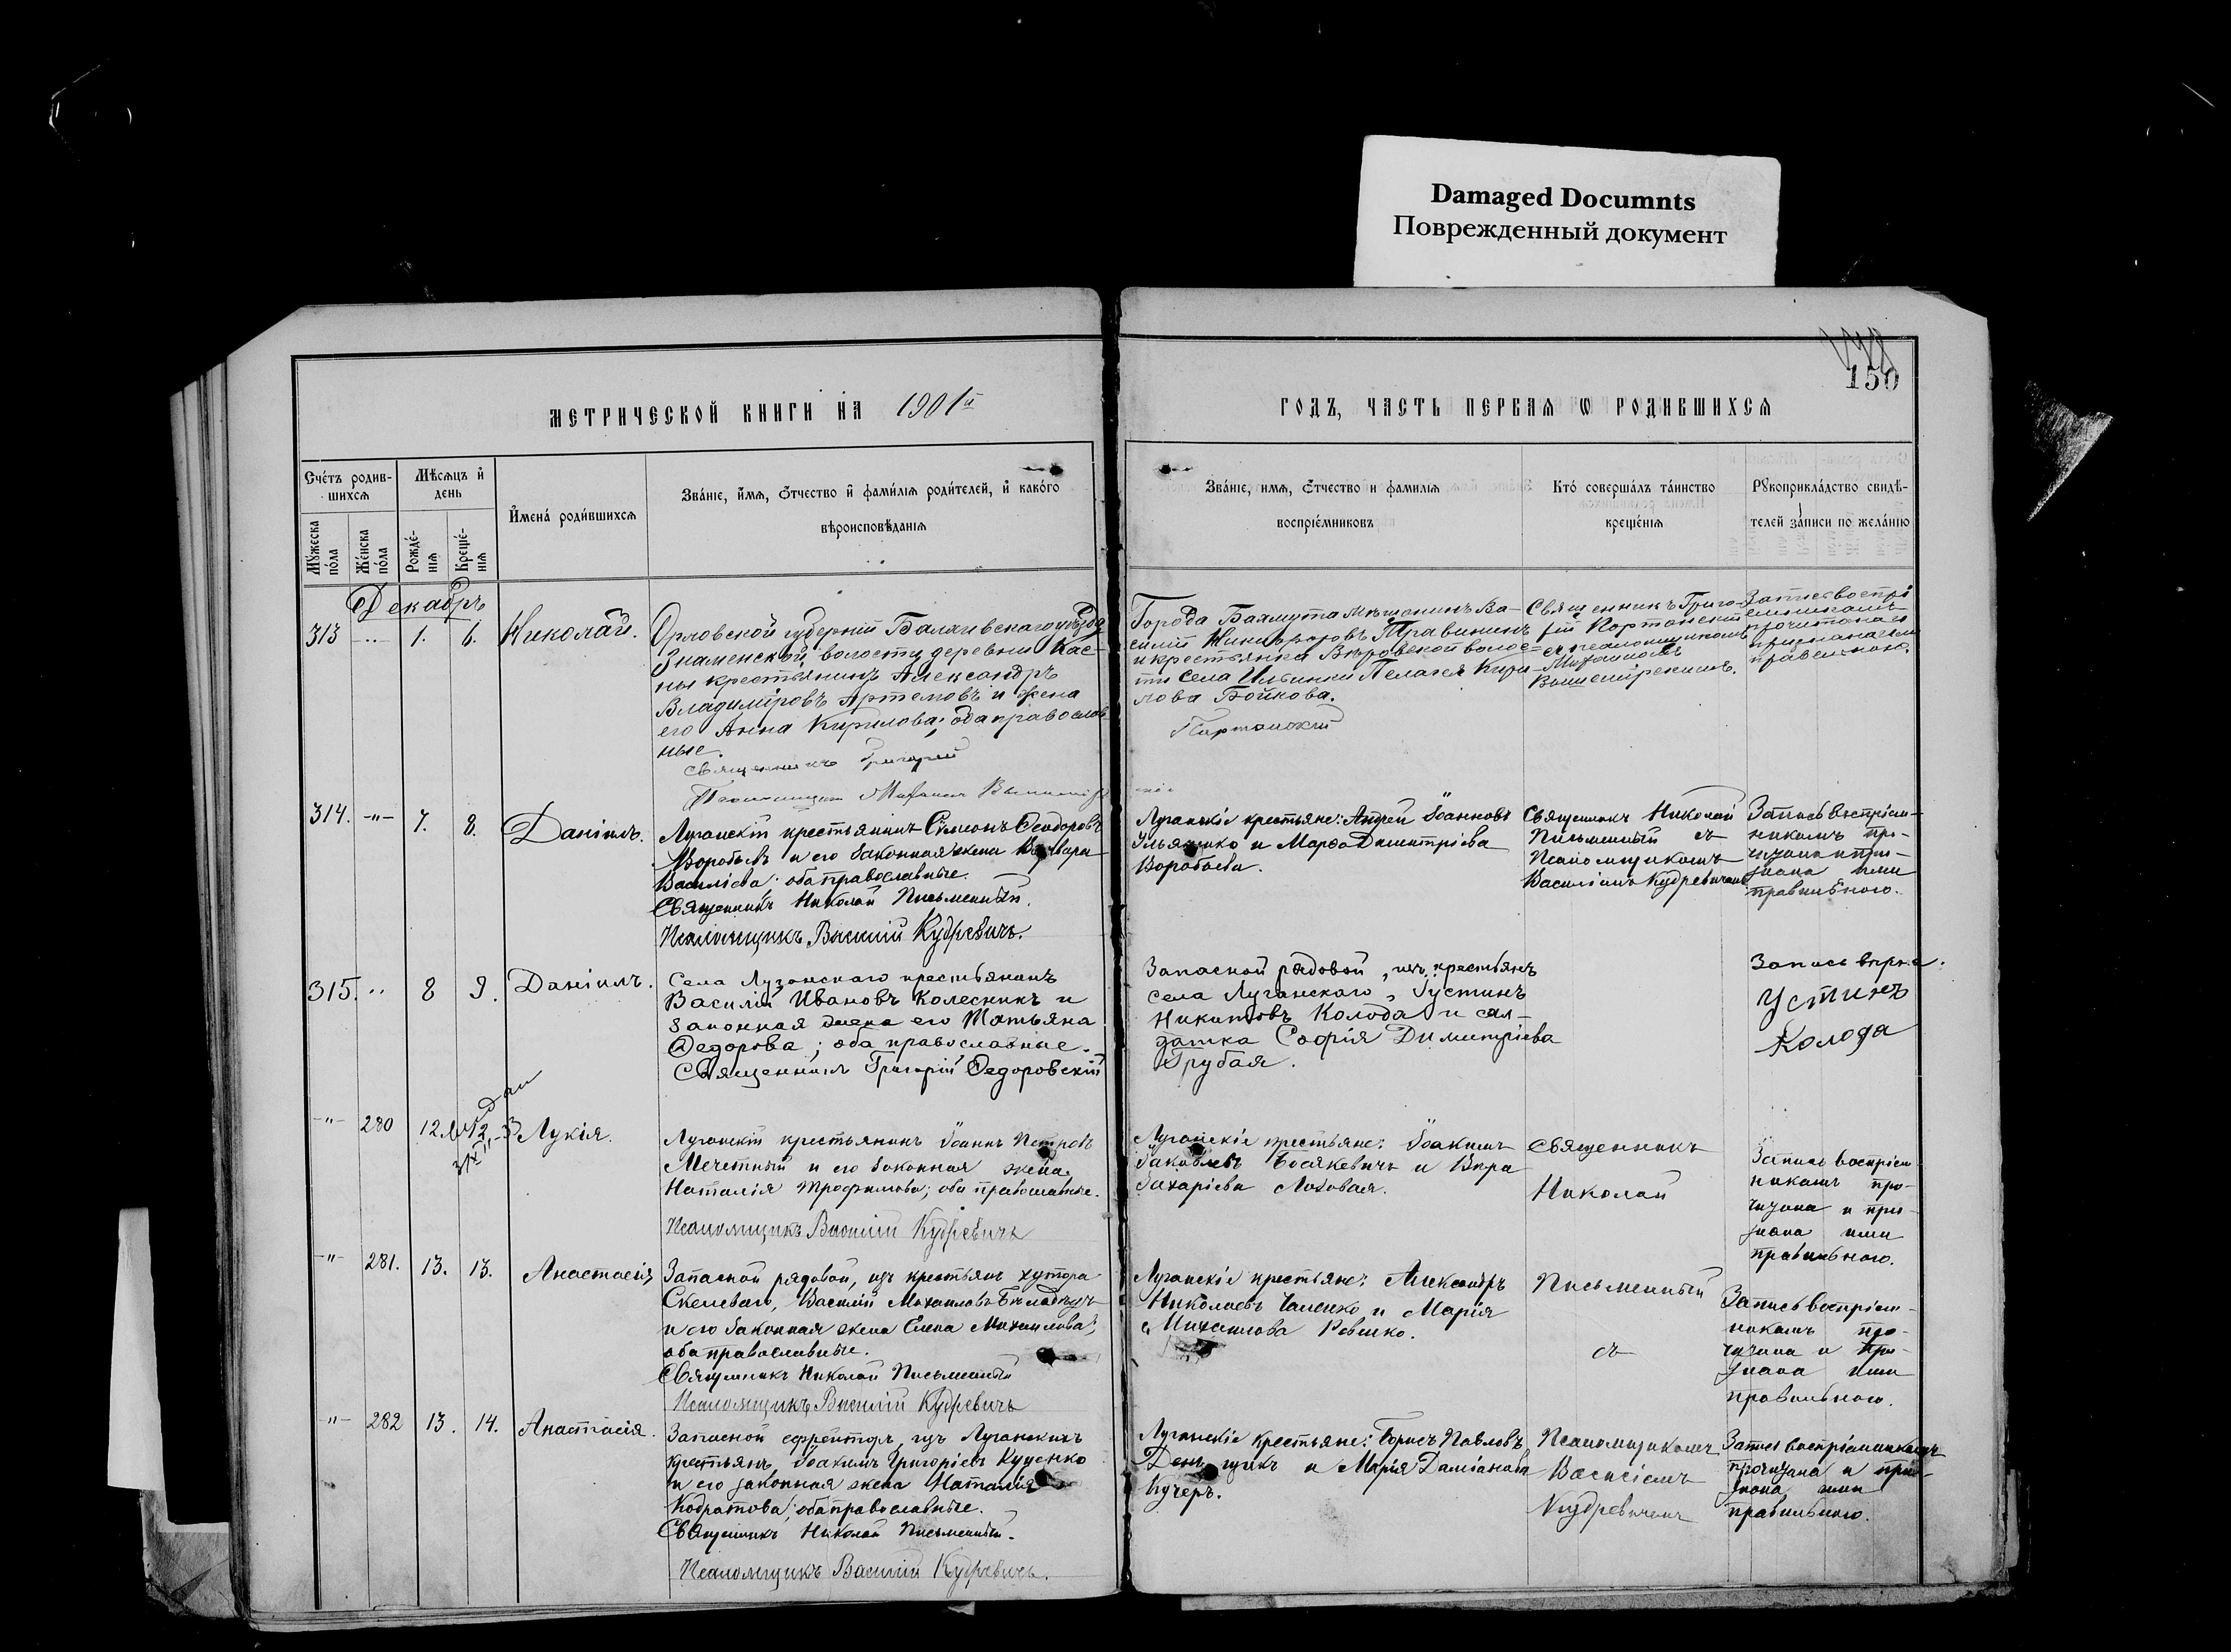 Damaged Documnts
Поврежденный документ
150
МЕТРИЧЕСКОЙ КНИГИ НА 1901й
ГОДЪ, ЧАСТЬ ПЕРВАЯ Ѡ РОДИВШИХСЯ
Счетъ родив-
шихся
Мѣсяцъ и
день
Мужеска
пола
Женска
пола
Рожде-
нія
Креще-
нія
Имена родившихся
Званіе, имя, отчество и фамилія родителей, и какого
вѣроисповѣданія
Званіе, имя, отчество и фамилія
воспріемниковъ
Кто совершалъ таинство
крещенія
Рукоприкладство свидѣ-
телей записи по желанію
Декабрь
313 1. 6. Николай.
Орловской губерніи уѣзда
Знаменской волости, деревни Кас-
ны крестьянинъ Александръ
Владиміровъ Артемовъ и жена
его Анна Кирилова; оба православ
ные.
Священникъ Григорій
Города Бахмута мѣщанинъ Ва-
силій Никифоровъ Травининъ
и крестьянка Вѣровской волос-
ти села Ильинки Пелагея Кири-
лова Бойкова.
Священникъ Григо-
рій
съ псаломщикомъ
Михаиломъ
Запись воспрі
емникамъ
прочитана и
признана ими
правильною.
314. -"- 7. 8. Даніилъ.
Луганскій крестьянинъ Симеонъ Ѳеодоровъ
Воробьевъ и его законная жена Варвара
Василіева; оба православные.
Священникъ Николай Письменный.
Псаломщикъ Василій Кудревичъ.
Луганскіе крестьяне: Андрей Іоанновъ
Ульяшко и Марѳа Димитріева
Воробьева.
Священникъ Николай
Письменный съ
Псаломщикомъ
Василіемъ Кудревичемъ
Запись воспріем-
никамъ про-
читана и при-
знана ими
правильною.
315. 8 9. Даніилъ.
Села Луганскаго крестьянинъ
Василій Ивановъ Колесникъ и
законная жена его Татьяна
Ѳедорова; оба православные.
Священникъ Григорій Ѳедоровскій
Запасной рядовой, изъ крестьянъ
села Луганскаго, Іустинъ
Никитовъ Колода и сол-
датка Софія Димитріева
Грубая.
Запись вѣрна.
Устинъ
Колода
-"- 280 12. 12 Лукія.
Луганскій крестьянинъ Іоаннъ Петровъ
Мечетный и его законная жена
Наталія Трофимова; оба православные.
Псаломщикъ Василій Кудревичъ
Луганскіе крестьяне: Іоакимъ
Іаковлевъ Босякевичъ и Вѣра
Захаріева Лозовая.
Священникъ
Николай
Запись воспріем-
никамъ про-
читана и при-
знана ими
правильною.
-"- 281. 13. 13. Анастасія
Запасной рядовой, изъ крестьянъ хутора
Скелеваго, Василій Михаиловъ
и его законная жена Елена Михаилова;
оба православные.
Священникъ Николай Письменный
Псаломщикъ Василій Кудревичъ
Луганскіе крестьяне: Александръ
Николаевъ и Марія
Михаилова Ревенко.
Письменный
съ
Запись воспріем-
никамъ про-
читана и при-
знана ими
правильною.
-"- 282 13. 14. Анастасія.
Запасной ефрейторъ, изъ Луганскихъ
крестьянъ, Іоакимъ Григоріевъ Куценко
и его законная жена Наталія
Кодратова; оба православные.
Священникъ Николай Письменный.
Псаломщикъ Василій Кудревичъ.
Луганскіе крестьяне: Борисъ Павловъ
Денщикъ и Марія Даміанова
Кучеръ.
Псаломщикомъ
Василіемъ
Кудревичемъ
Запись воспріемникамъ
прочитана и при-
знана ими
правильною.